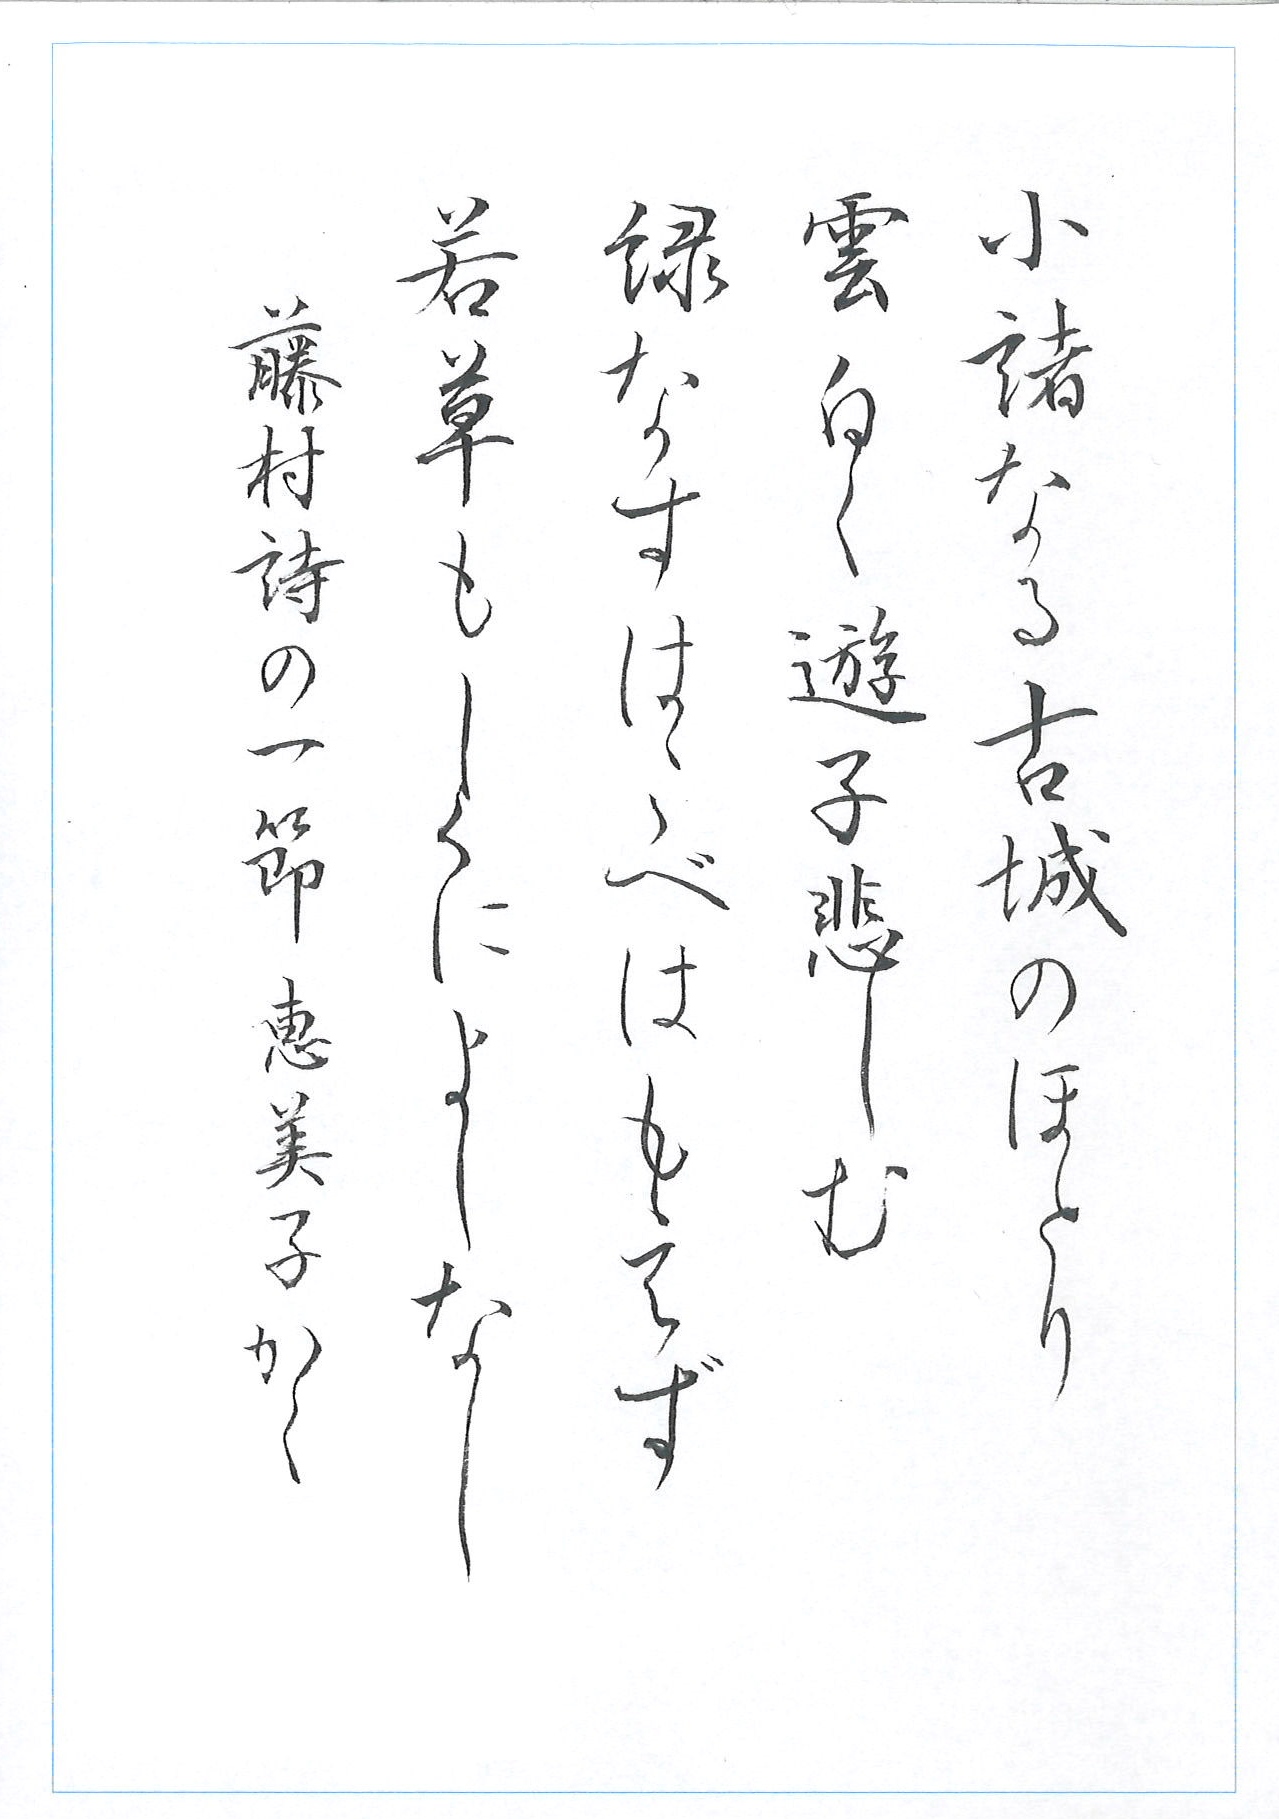 小諸なる古城のほとり
雲白く遊子悲しむ
緑なすはこべはもえず
若草もしくによしなし
藤村詩の一節 恵美子かく